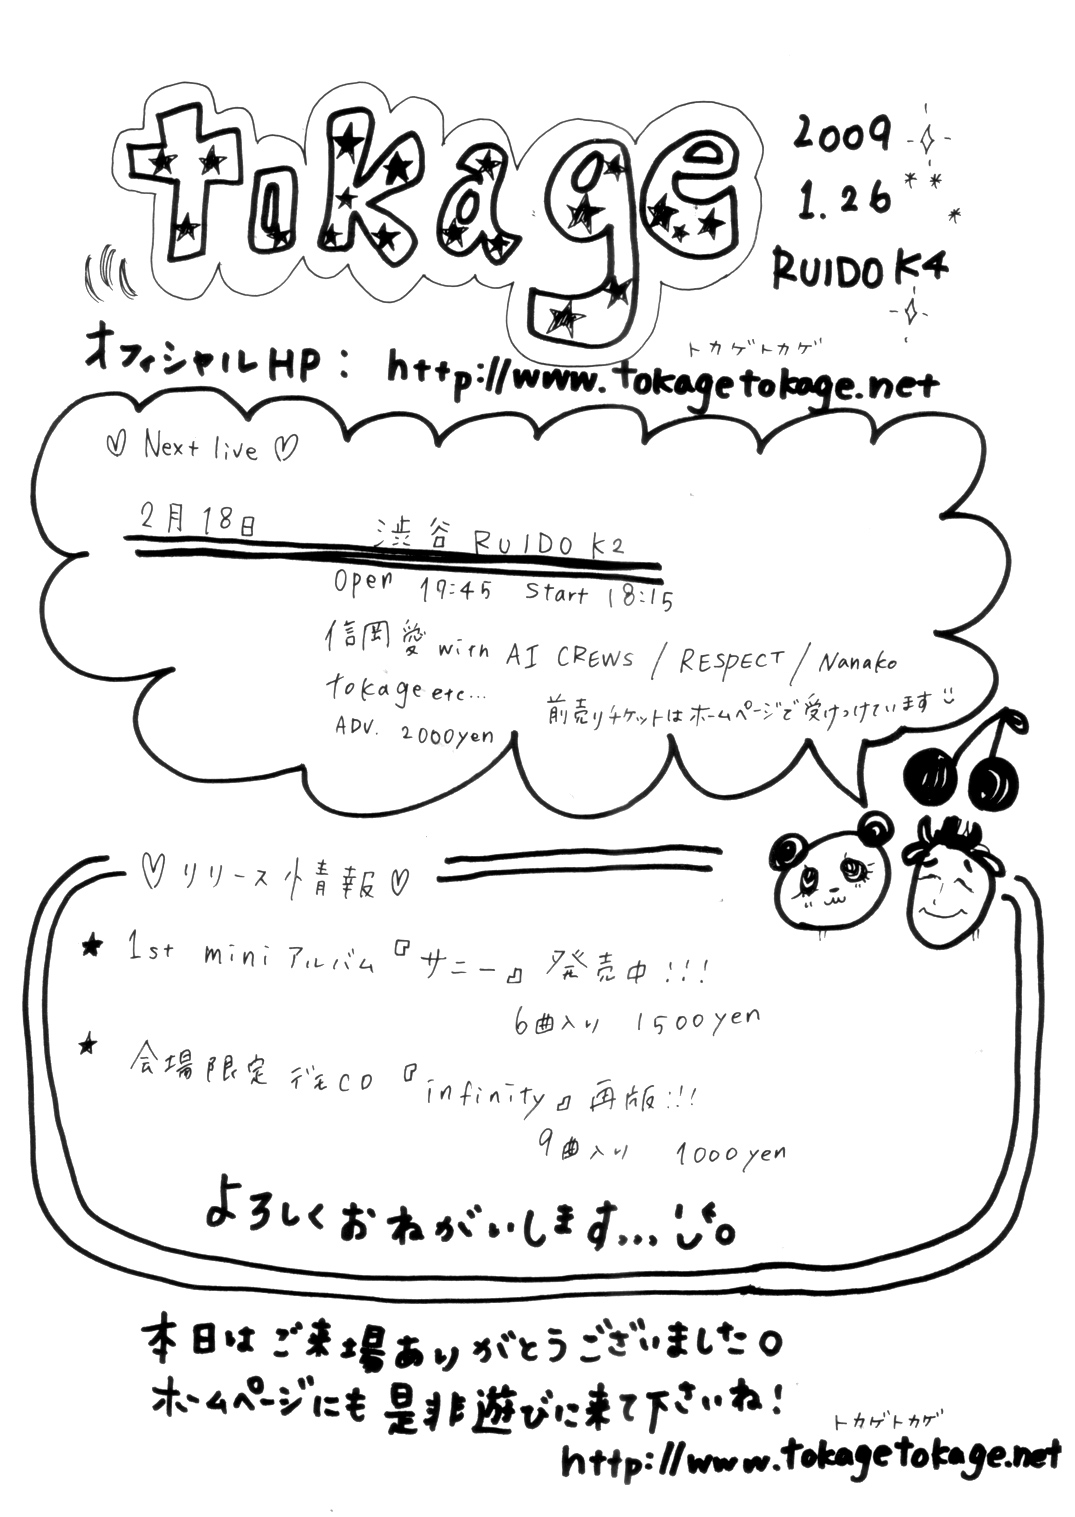 tokage
2009
1.26
RUIDO K4
トカゲトカゲ
オフィシャルHP: http://www.tokagetokage.net
♡ Next live ♡
2月18日 渋谷 RUIDO K2
Open 17:45 Start 18:15
信岡愛 with AI CREWS / RESPECT / Nanako
tokage etc...
前売りチケットはホームページで受けつけています
ADV. 2000yen
♡ リリース情報 ♡
★ 1st mini アルバム『サニー』発売中!!!
6曲入り 1500yen
★ 会場限定 デモCD 『infinity』再版!!!
9曲入り 1000yen
よろしくおねがいします...
本日はご来場ありがとうございました。
ホームページにも是非遊びに来て下さいね!
トカゲトカゲ
http://www.tokagetokage.net